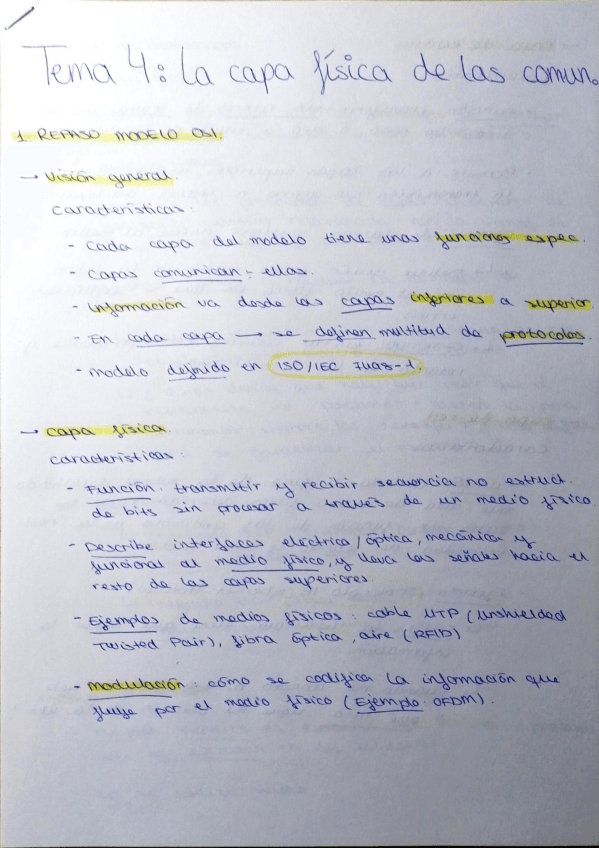 Tema 4: La capa física de las comun.
1. REPASO MODELO OSI.
→ Visión general.
Características.
- Cada capa del modelo tiene unas funciones espec.
- Capas comunican ellas.
- Información va desde las capas inferiores a superior.
- En cada capa → se definen multitud de protocolos.
- modelo definido en ISO/IEC 7498-1.
→ Capa física.
características
- Función: transmitir y recibir secuencia no estruct.
de bits sin procesar a través de un medio físico.
- Describe interfaces eléctrica/óptica, mecánica y
funcional al medio físico, y lleva las señales hacia el
resto de las capas superiores
- Ejemplos de medios físicos: cable UTP (Unshielded
Twisted Pair), fibra óptica, aire (RFID)
- Modulación: cómo se codifica la información que
fluye por el medio físico (Ejemplo OFDM).